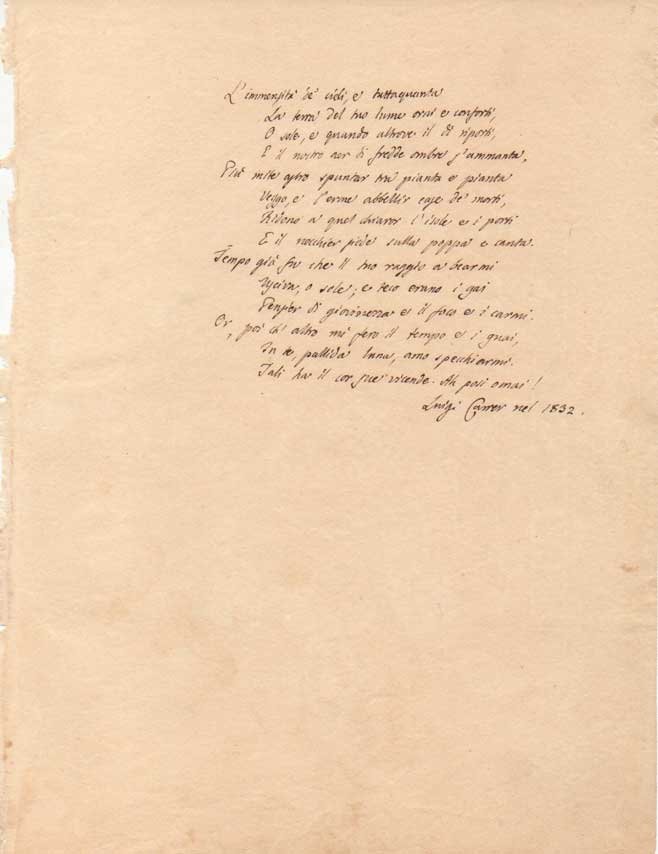 L'immensità de' cieli, e tuttaquanta
La terra del tuo lume orni e conforti,
O sole, e quando altrove il dì riporti,
E il nostro aer di fredde ombre s'ammanta,
Più mite astro spuntar tra pianta e pianta
Veggo, e l'erme abbellir case de' morti,
Ridono a quel chiaror l'isole e i porti
E il nocchier siede sulla poppa e canta.
Tempo già fu che il tuo raggio a bearmi
Usciva, o sole; e teco erano i gai
Pensier di giovinezza e il foco e i carmi.
Or, poi ch'altro mi fero il tempo e i guai,
In te, pallida luna, amo specchiarmi.
Tali ha il cor sue vicende. Ah posi omai!
Luigi Carrer nel 1832.